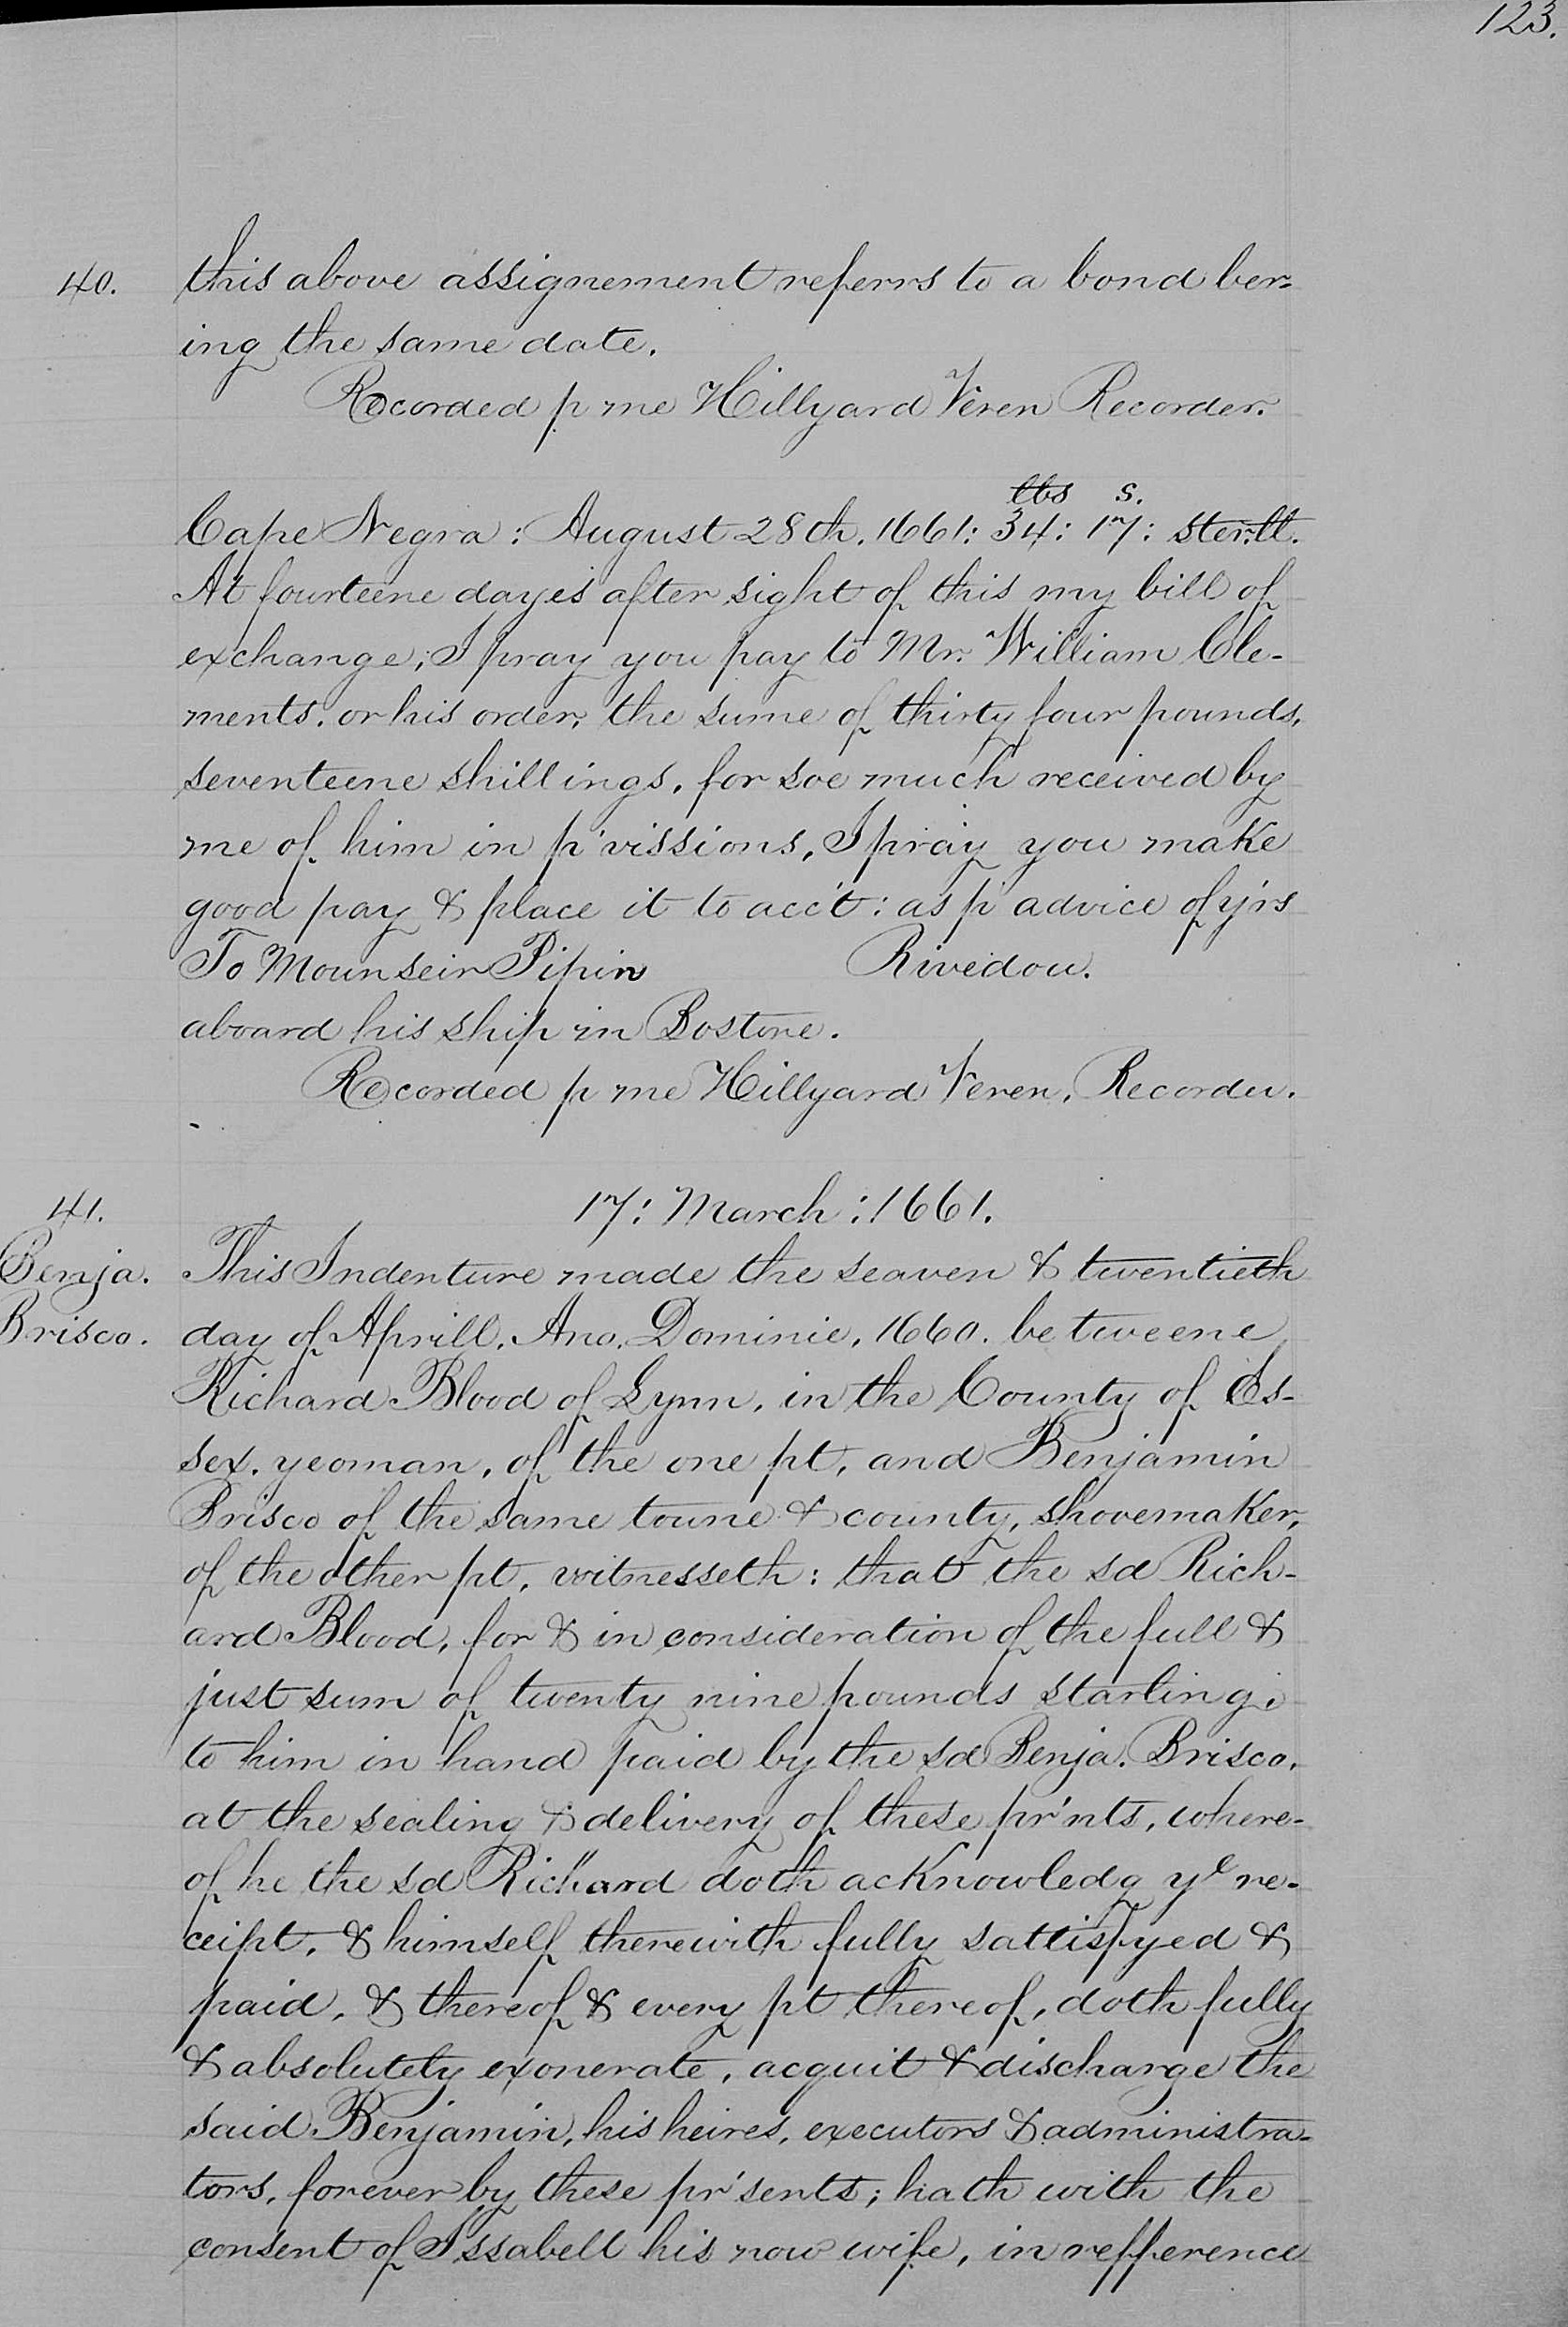 123.
40. this above assignement referrs to a bond ber-
ing the same date.
Recorded p me Hillyard Veren Recorder.
lbs s.
Cape Negra: August 28th. 1661: 34: 17: sterll.
At fourteene dayes after sight of this my bill of
exchange, I pray you pay to Mr. William Cle-
ments. or his order, the sume of thirty four pounds,
seventeene shillings, for soe much received by
me of him in p'vissions, I pray you make
good pay & place it to acc't: as p' advice of y'rs
To Mounseir Pipin Rivedou.
aboard his ship in Bostone.
Recorded p me Hillyard Veren, Recorder.
41. 17: March: 1661.
Benja. This Indenture made the seaven & twentieth
Brisco. day of Aprill. Ano. Dominie, 1660. betweene
Richard Blood of Lynn, in the County of Es-
sex. yeoman, of the one pt, and Benjamin
Brisco of the same towne & county, shovemaker,
of the other pt, witnesseth: that the sd Rich-
ard Blood, for & in consideration of the full &
just sum of twenty nine pounds starling,
to him in hand paid by the sd Benja. Brisco,
at the sealing & delivery of these pr'nts, where-
of he the sd Richard doth acknowledg yᵉ re-
ceipt, & himself therewith fully sattisfyed &
paid, & thereof & every pt thereof, doth fully
& absolutely exonerate, acquit & discharge the
said Benjamin, his heires, executors & administra-
tors, forever by these pr'sents; hath with the
consent of Issabell his now wife, in refference